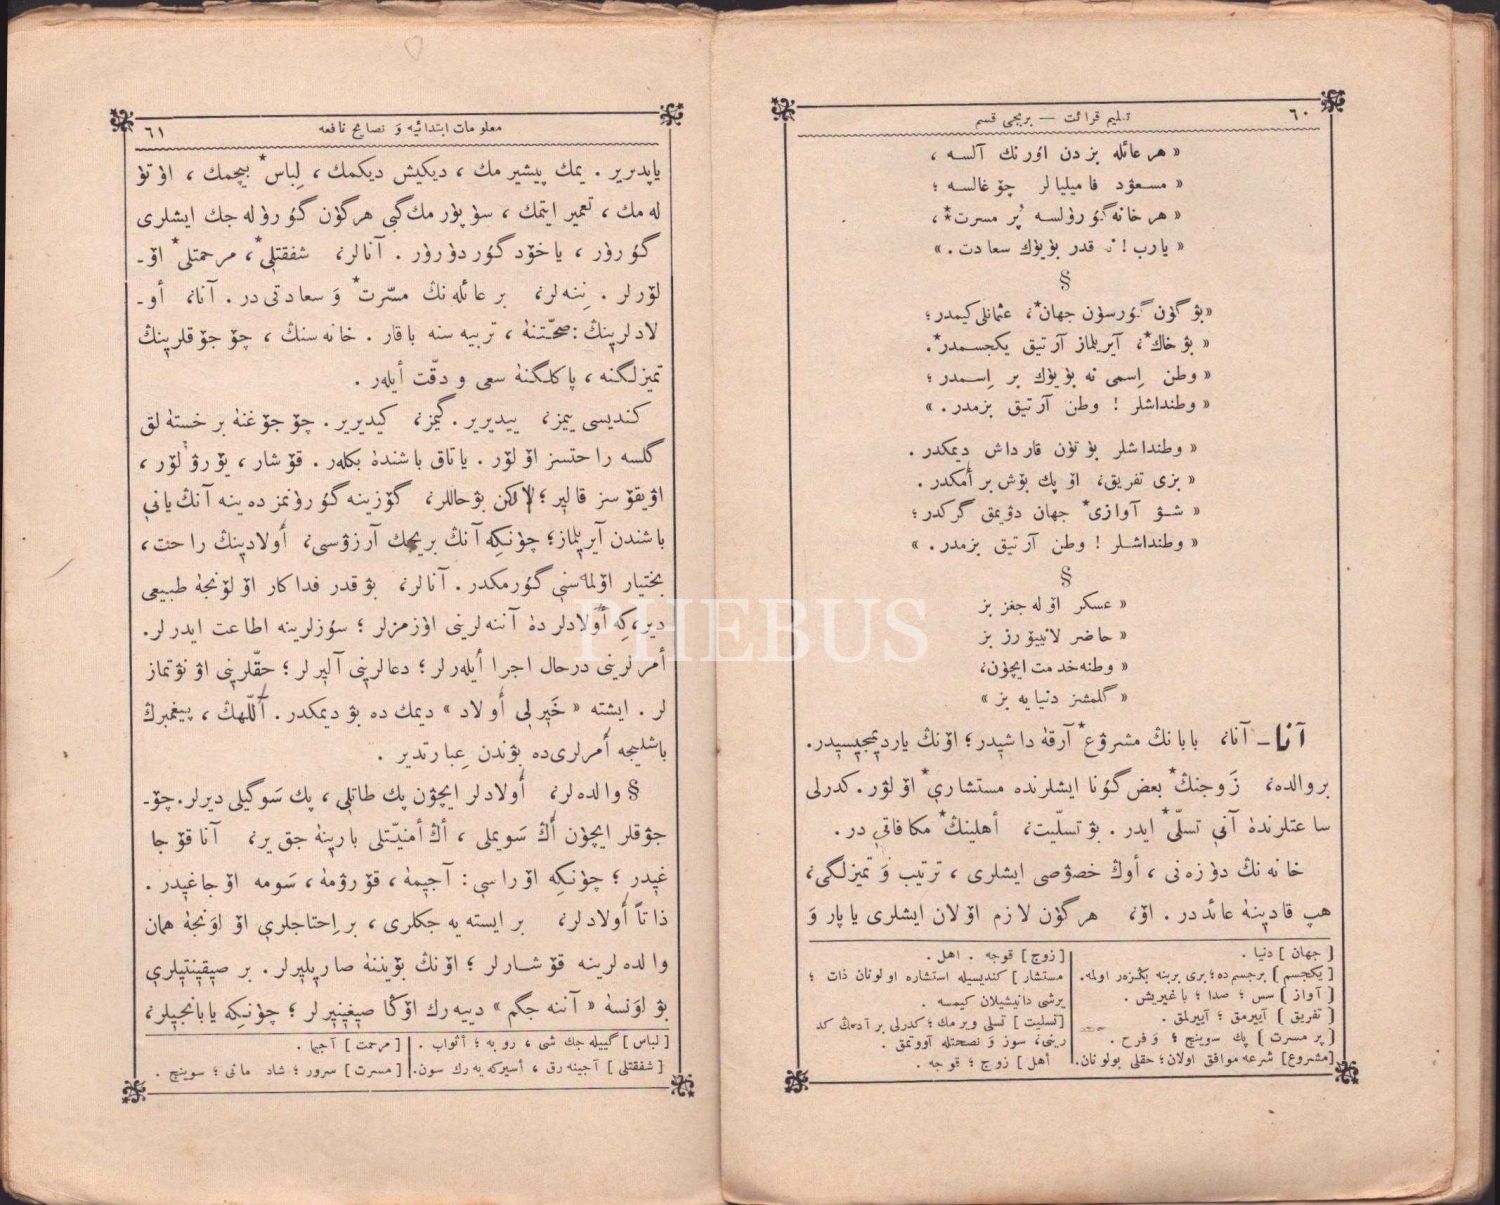 ٦٠
تعليم قرائت — برنجى قسم
« هر عائله بزدن اۇرنك آلسه ،
« مسعۇد فاميليالر چۆغالسه ؛
« هر خانه گۇرۇلسه پُر مسرت* ،
« يارب ! نه قدر بۇيۇك سعادت . »
§
« بۇ گۇن گۇرسۇن جهان* ، عثمانلى كيمدر ؛
« بۇ خاك* ، آيريلماز آرتيق يكجسمدر* .
« وطن اِسمى نه بۇيۇك بر اِسمدر ؛
« وطنداشلر ! وطن آرتيق بزمدر . »
« وطنداشلر بۇتۇن قارداش ديمكدر .
« بزى تفريق ، اۆپك بۆش بر أمكدر .
« شۇ آوازى* جهان دۇيمق گركدر ؛
« وطنداشلر ! وطن آرتيق بزمدر . »
§
« عسكر اۆله جغز بز
« حاضر لانييۆرز بز
« وطنه خدمت ايچۇن ،
« گلمشز دنيايه بز »
آنا ـ آنا ، بابانك مشروع* آرقه داشيدر ؛ اۆنك يارديمجيسيدر.
بر والده ، زَوجنك* بعض گۇنا ايشلرنده مستشارى* اۆلۇر. كدرلى
ساعتلرنده آنى تسلّى* ايدر . بۇ تسلّيت ، أهلينك* مكافاتى در .
خانه نك دۇزه نى ، أوڭ خصوصى ايشلرى ، ترتيب وَ تميزلگى ،
هپ قادينه عائددر . اۆ ، هر گۇن لازم اۆلان ايشلرى ياپار وَ
[ جهان ] دنيا .
[ يكجسم ] بر جسم ده ؛ برى برينه بڭزه ر اولمه .
[ آواز ] سس ؛ صدا ؛ باغيريش .
[ تفريق ] آييرمق ؛ آييرلمق .
[ پر مسرت ] پك سوينچ ؛ وَ فرح .
[ مشروع ] شرعه موافق اولان ؛ حقلى بولونان.
[ زوج ] قوجه . اهل .
مستشار ] كنديسيله استشاره اولونان ذات ؛
برشى دانيشيلان كيمسه .
[ تسليت ] تسلى ويرمك ؛ كدرلى بر آدمك كد
رينى ، سوز و نصحتله آووتمق .
أهل ] زوج ؛ قوجه .
٦١
معلومات ابتدائيه وَ نصايح نافعه
ياپديرير . يمك پيشيرمك ، ديكيش ديكمك ، لِباس* بيچمك ، اۆتۇ
له مك ، تعمير ايتمك ، سۇپۇرمك گبى هر گۇن گۇرۇله جك ايشلرى
گۇرۇر ، ياخۆد گۇردۇرۇر . آنالر ، شفقتلى* ، مرحمتلى* اۆـ
لۆرلر . نِنه لر ، بر عائله نك مسّرت* وَ سعادتى در . آنا ، أوـ
لادلرينڭ : صحّتنه ، تربيه سنه باقار . خانه سنڭ ، چۆجۇقلرينڭ
تميزلگنه ، پاكلگنه سعى و دقّت أيله ر .
كنديسى ييمز ، ييديرير . گيمز ، كيديرير . چۆجۇغنه بر خسته لق
گلسه راحتسز اۆلۆر . ياتاق باشنده بكلەر. قۆشار ، يۆرۇلۆر ،
اۇيقۆسز قالير ؛ لاكن بۇ حاللر ، گۆزينه گۇرۇنمز ده ينه آنڭ يانى
باشندن آيريلماز ؛ چۇنكه آنڭ بريجك آرزۇسى ، أولادينڭ راحت ،
بختيار اۆلماسنى گۇرمكدر . آنالر ، بۇ قدر فداكار اۆلۇنجه طبيعى
دير ، كِه أولادلر ده آننه لرينى اۇزمزلر ؛ سۇزلرينه اطاعت ايدرلر.
أمرلرينى درحال اجرا أيله رلر ؛ دعالرينى آليرلر ؛ حقّلرينى اۇنۇتماز
لر . ايشته « خَيرلى أولاد » ديمك ده بۇ ديمكدر . أللّهڭ ، پيغمبرڭ
باشليجه أمرلرى ده بۇندن عِبارتدير .
§ والده لر ، أولادلر ايچۇن پك طاتلى ، پك سَوگيلى ديرلر. چۆـ
جۇقلر ايچۇن أڭ سَويملى ، أڭ أمنيّتلى بارينه جق ير ، آنا قۆجا
غيدر ؛ چۇنكه اۆراسى : آجيمه ، قۆرۇمه ، سَومه اۆجاغيدر .
ذاتاً أولادلر ، بر ايسته يه جكلرى ، بر احتاجلرى اۆلۇنجه همان
والده لرينه قۆشارلر ؛ اۆنڭ بۆيننه صاريليرلر . بر صيقينتيلرى
بۇلۇنسه « آننه جگم » دييه رك اۆڭا صيغينيرلر ؛ چۇنكه يابانجيلر ،
[ لباس ] گييله جك شى ، روبه ؛ أثواب .
[ شفقتلى ] آجينه رق ، أسيركه يه رك سون.
[ مرحمت ] آجيما .
[ مسرت ] سرور ؛ شادمانى ؛ سوينچ .
PHEBUS